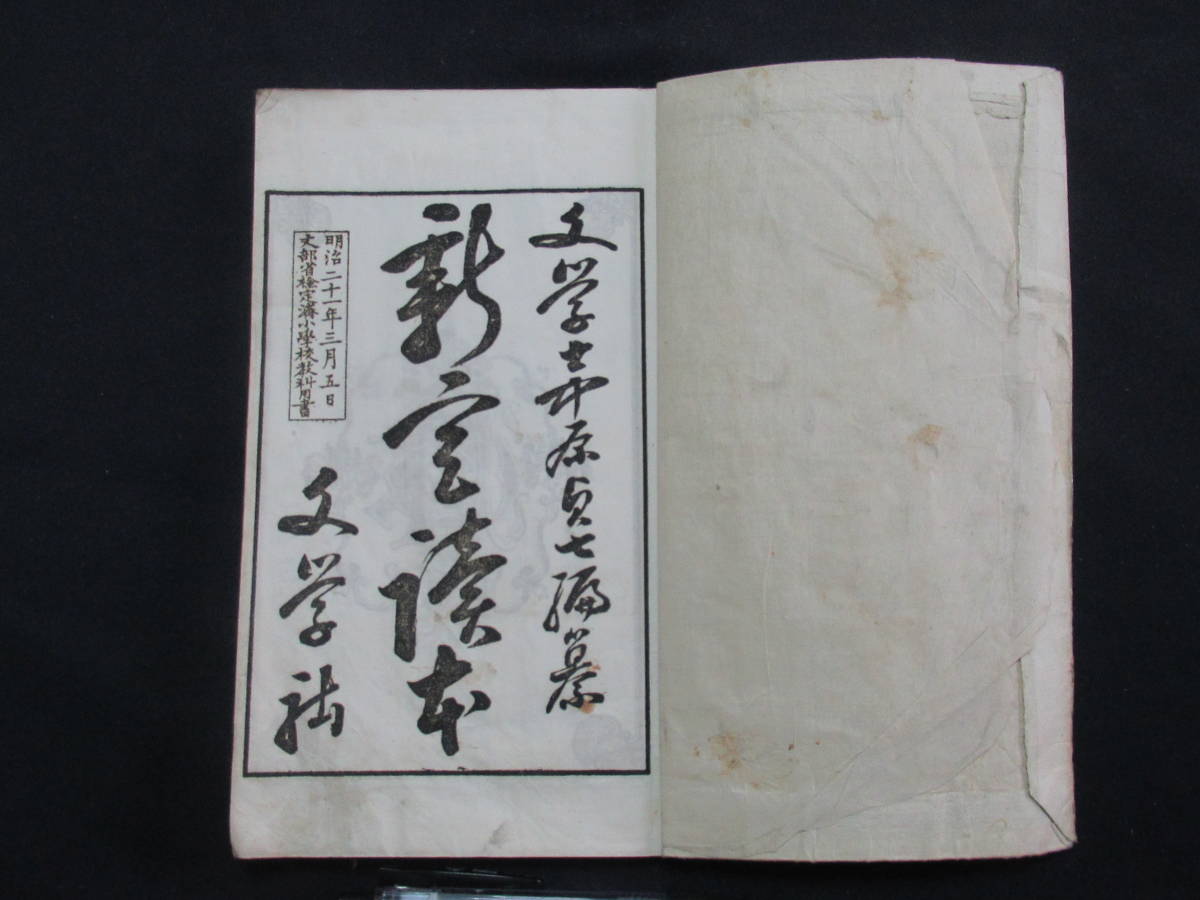 文学士中原貞七編纂
新定讀本
明治二十一年三月五日
文部省檢定濟小學校教科用書
文学社